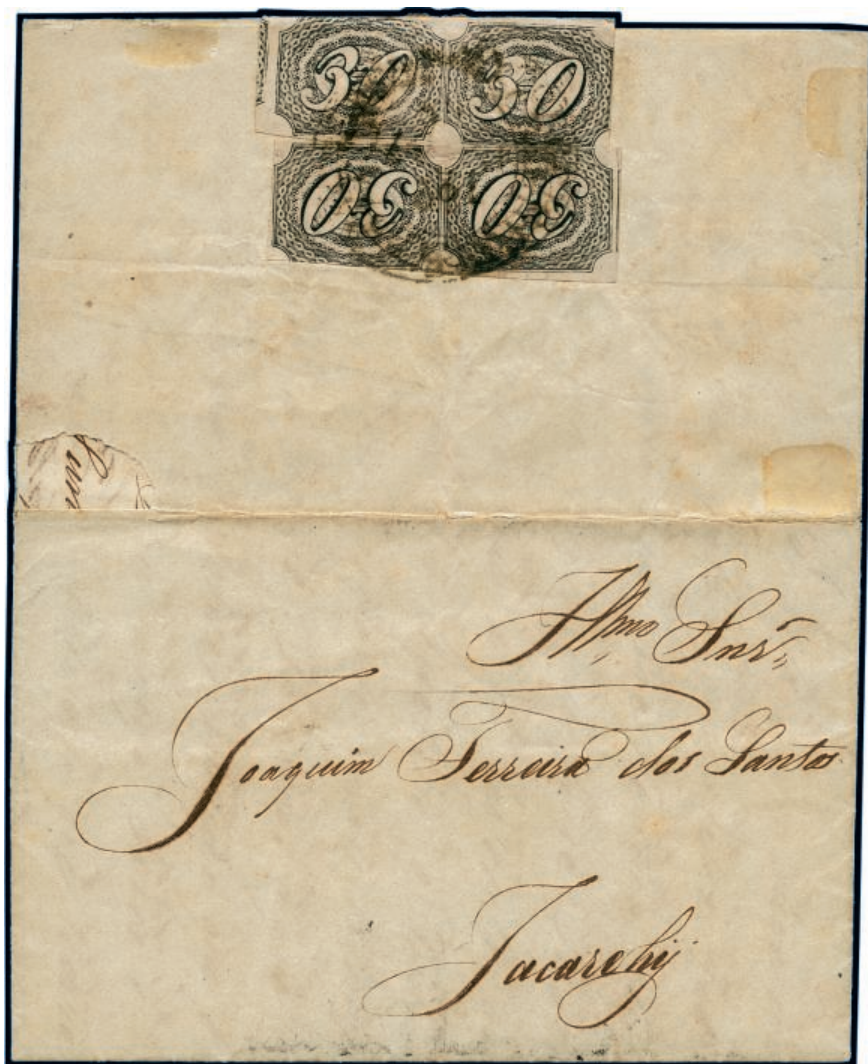 30 30
30 30
Illmo Snr
Joaquim Ferreira dos Santos
Jacarehy